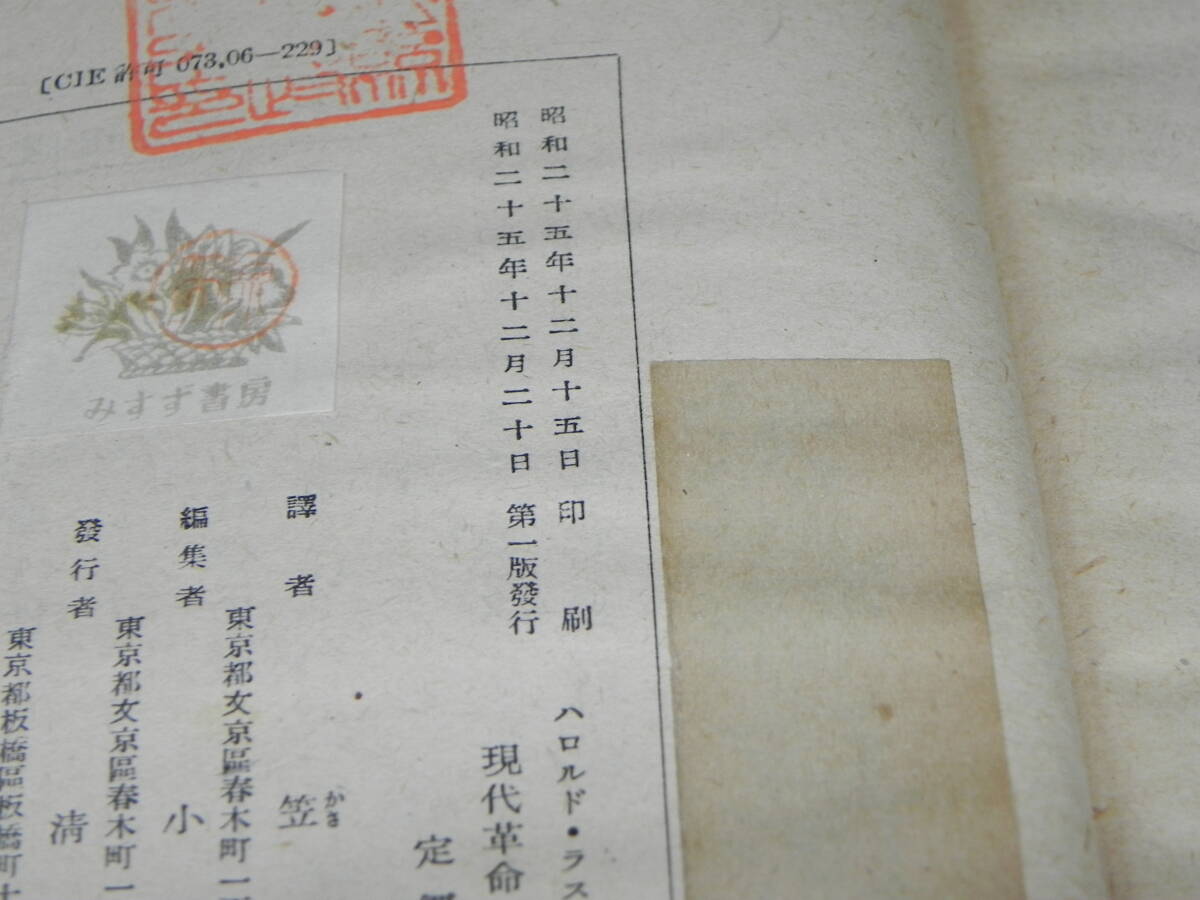 [CIE 許可 073.06—229]
昭和二十五年十二月十五日 印 刷
昭和二十五年十二月二十日 第一版發行
みすず書房
ハロルド・ラス
現代革命
定
譯 者
笠
かさ
東京都文京區春木町一
編集者
小
東京都文京區春木町一
發行者
清
東京都板橋區板橋町十